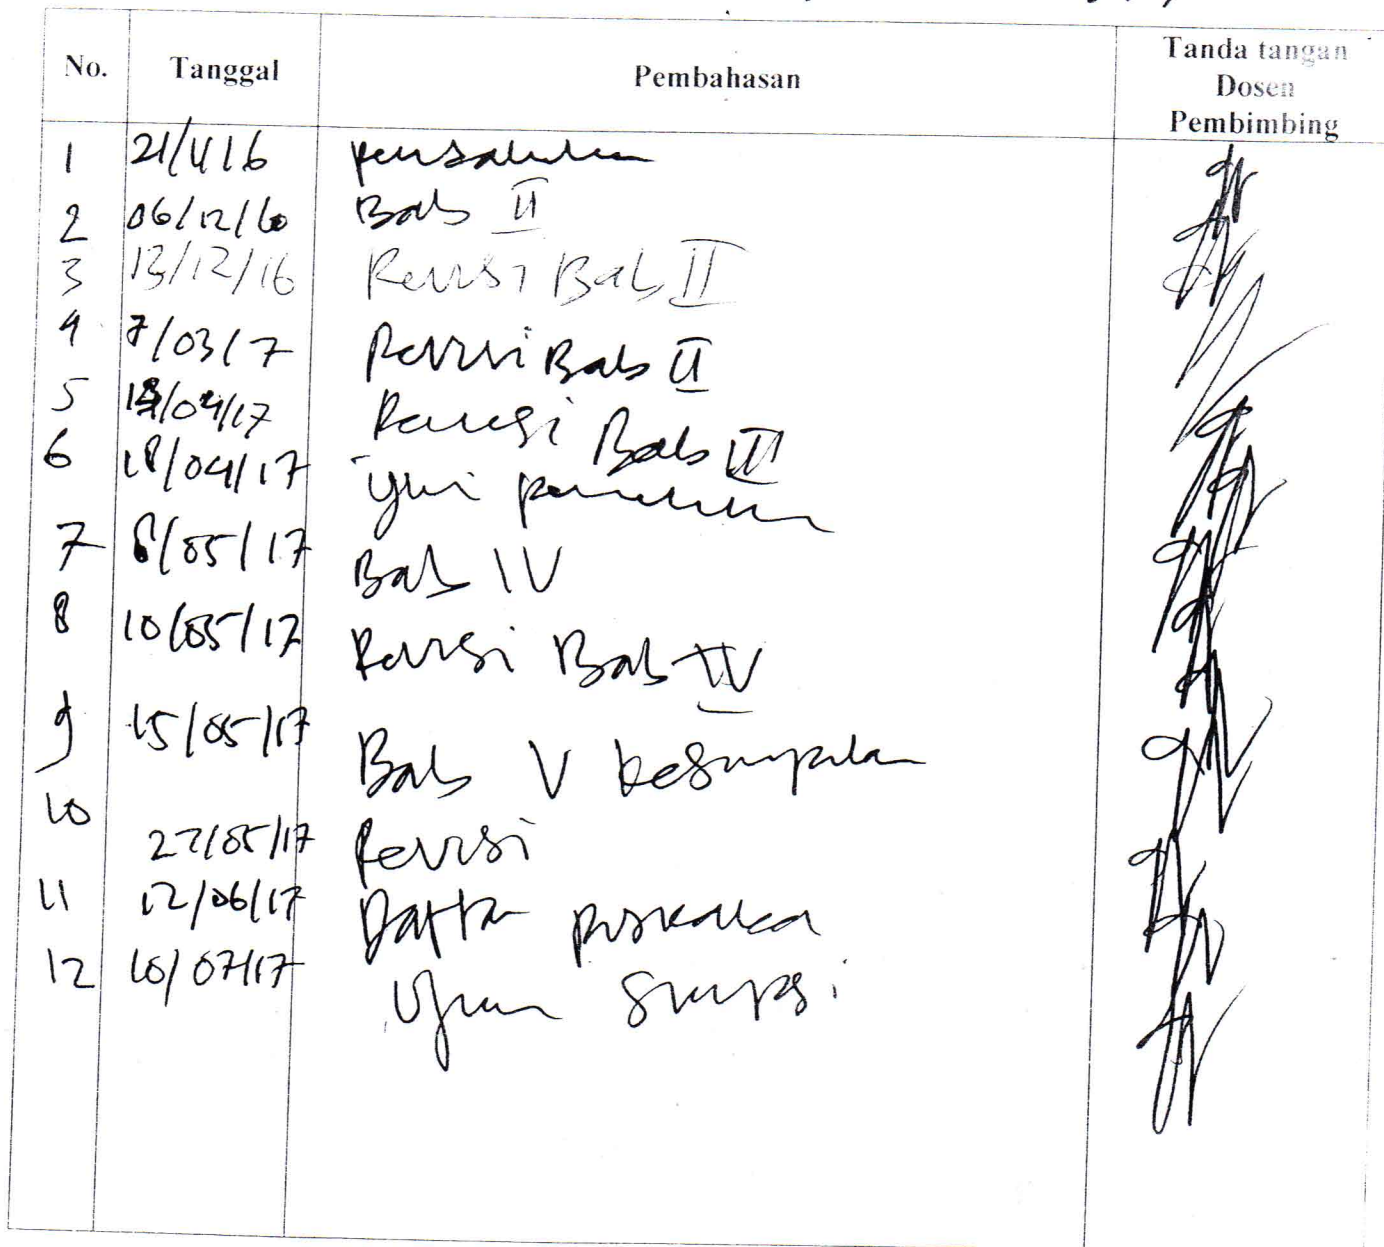 No. Tanggal Pembahasan Tanda tangan Dosen Pembimbing
1 21/4 16
2 06/12/16 Bab II
3 13/12/16 Revisi Bab II
4 7/03/17 Revisi Bab II
5 /04/17 Revisi Bab III
6 18/04/17
7 8/05/17 Bab IV
8 10/05/17 Revisi Bab IV
9 15/05/17 Bab V kesimpulan
10 27/05/17 Revisi
11 12/06/17 Daftar pustaka
12 10/07/17 Ujian Skripsi